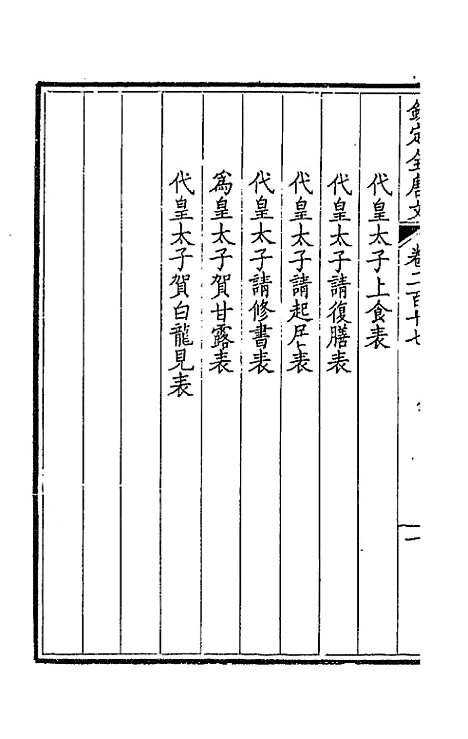 欽定全唐文 卷二百十七
代皇太子上食表
代皇太子請復膳表
代皇太子請起居表
代皇太子請修書表
爲皇太子賀甘露表
代皇太子賀白龍見表